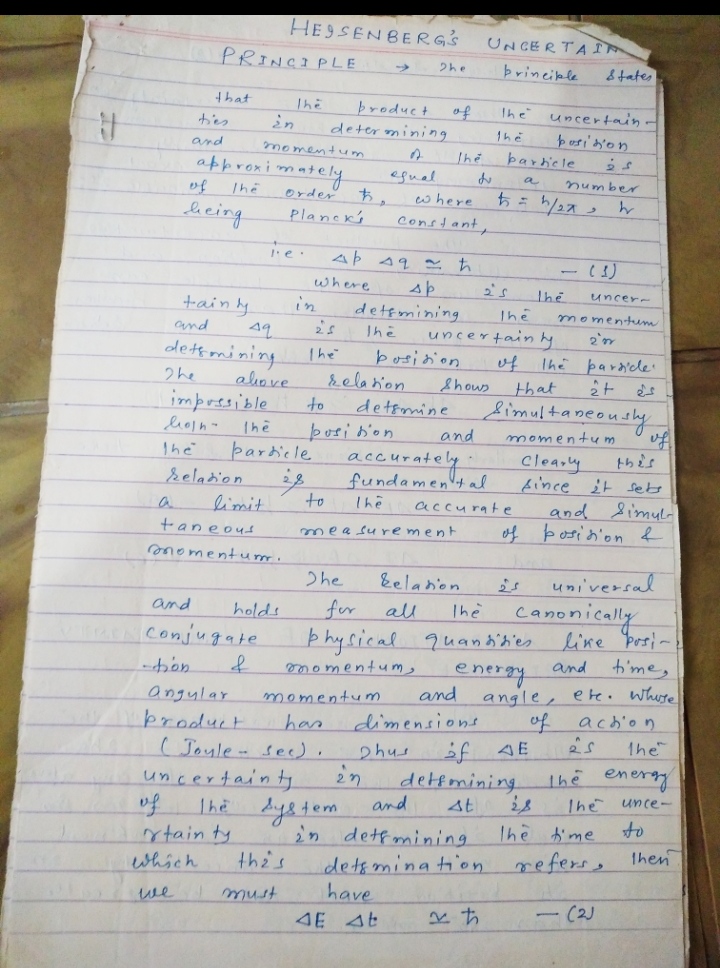 HEISENBERG'S UNCERTAIN
PRINCIPLE → The principle states
that the product of the uncertain-
ties in determining the position
and momentum of the particle is
approximately equal to a number
of the order ħ, where ħ = h/2π, h
being Planck's constant,
i.e. Δp Δq ≃ ħ — (1)
where Δp is the uncer-
tainty in determining the momentum
and Δq is the uncertainty in
determining the position of the particle.
The above relation shows that it is
impossible to determine simultaneously
both the position and momentum of
the particle accurately. Clearly this
relation is fundamental since it sets
a limit to the accurate and simul-
taneous measurement of position &
momentum.
The relation is universal
and holds for all the canonically
conjugate physical quantities like posi-
-tion & momentum, energy and time,
angular momentum and angle, etc. whose
product has dimensions of action
(Joule-sec). Thus if ΔE is the
uncertainty in determining the energy
of the system and Δt is the unce-
rtainty in determining the time to
which this determination refers, then
we must have
ΔE Δt ≃ ħ — (2)